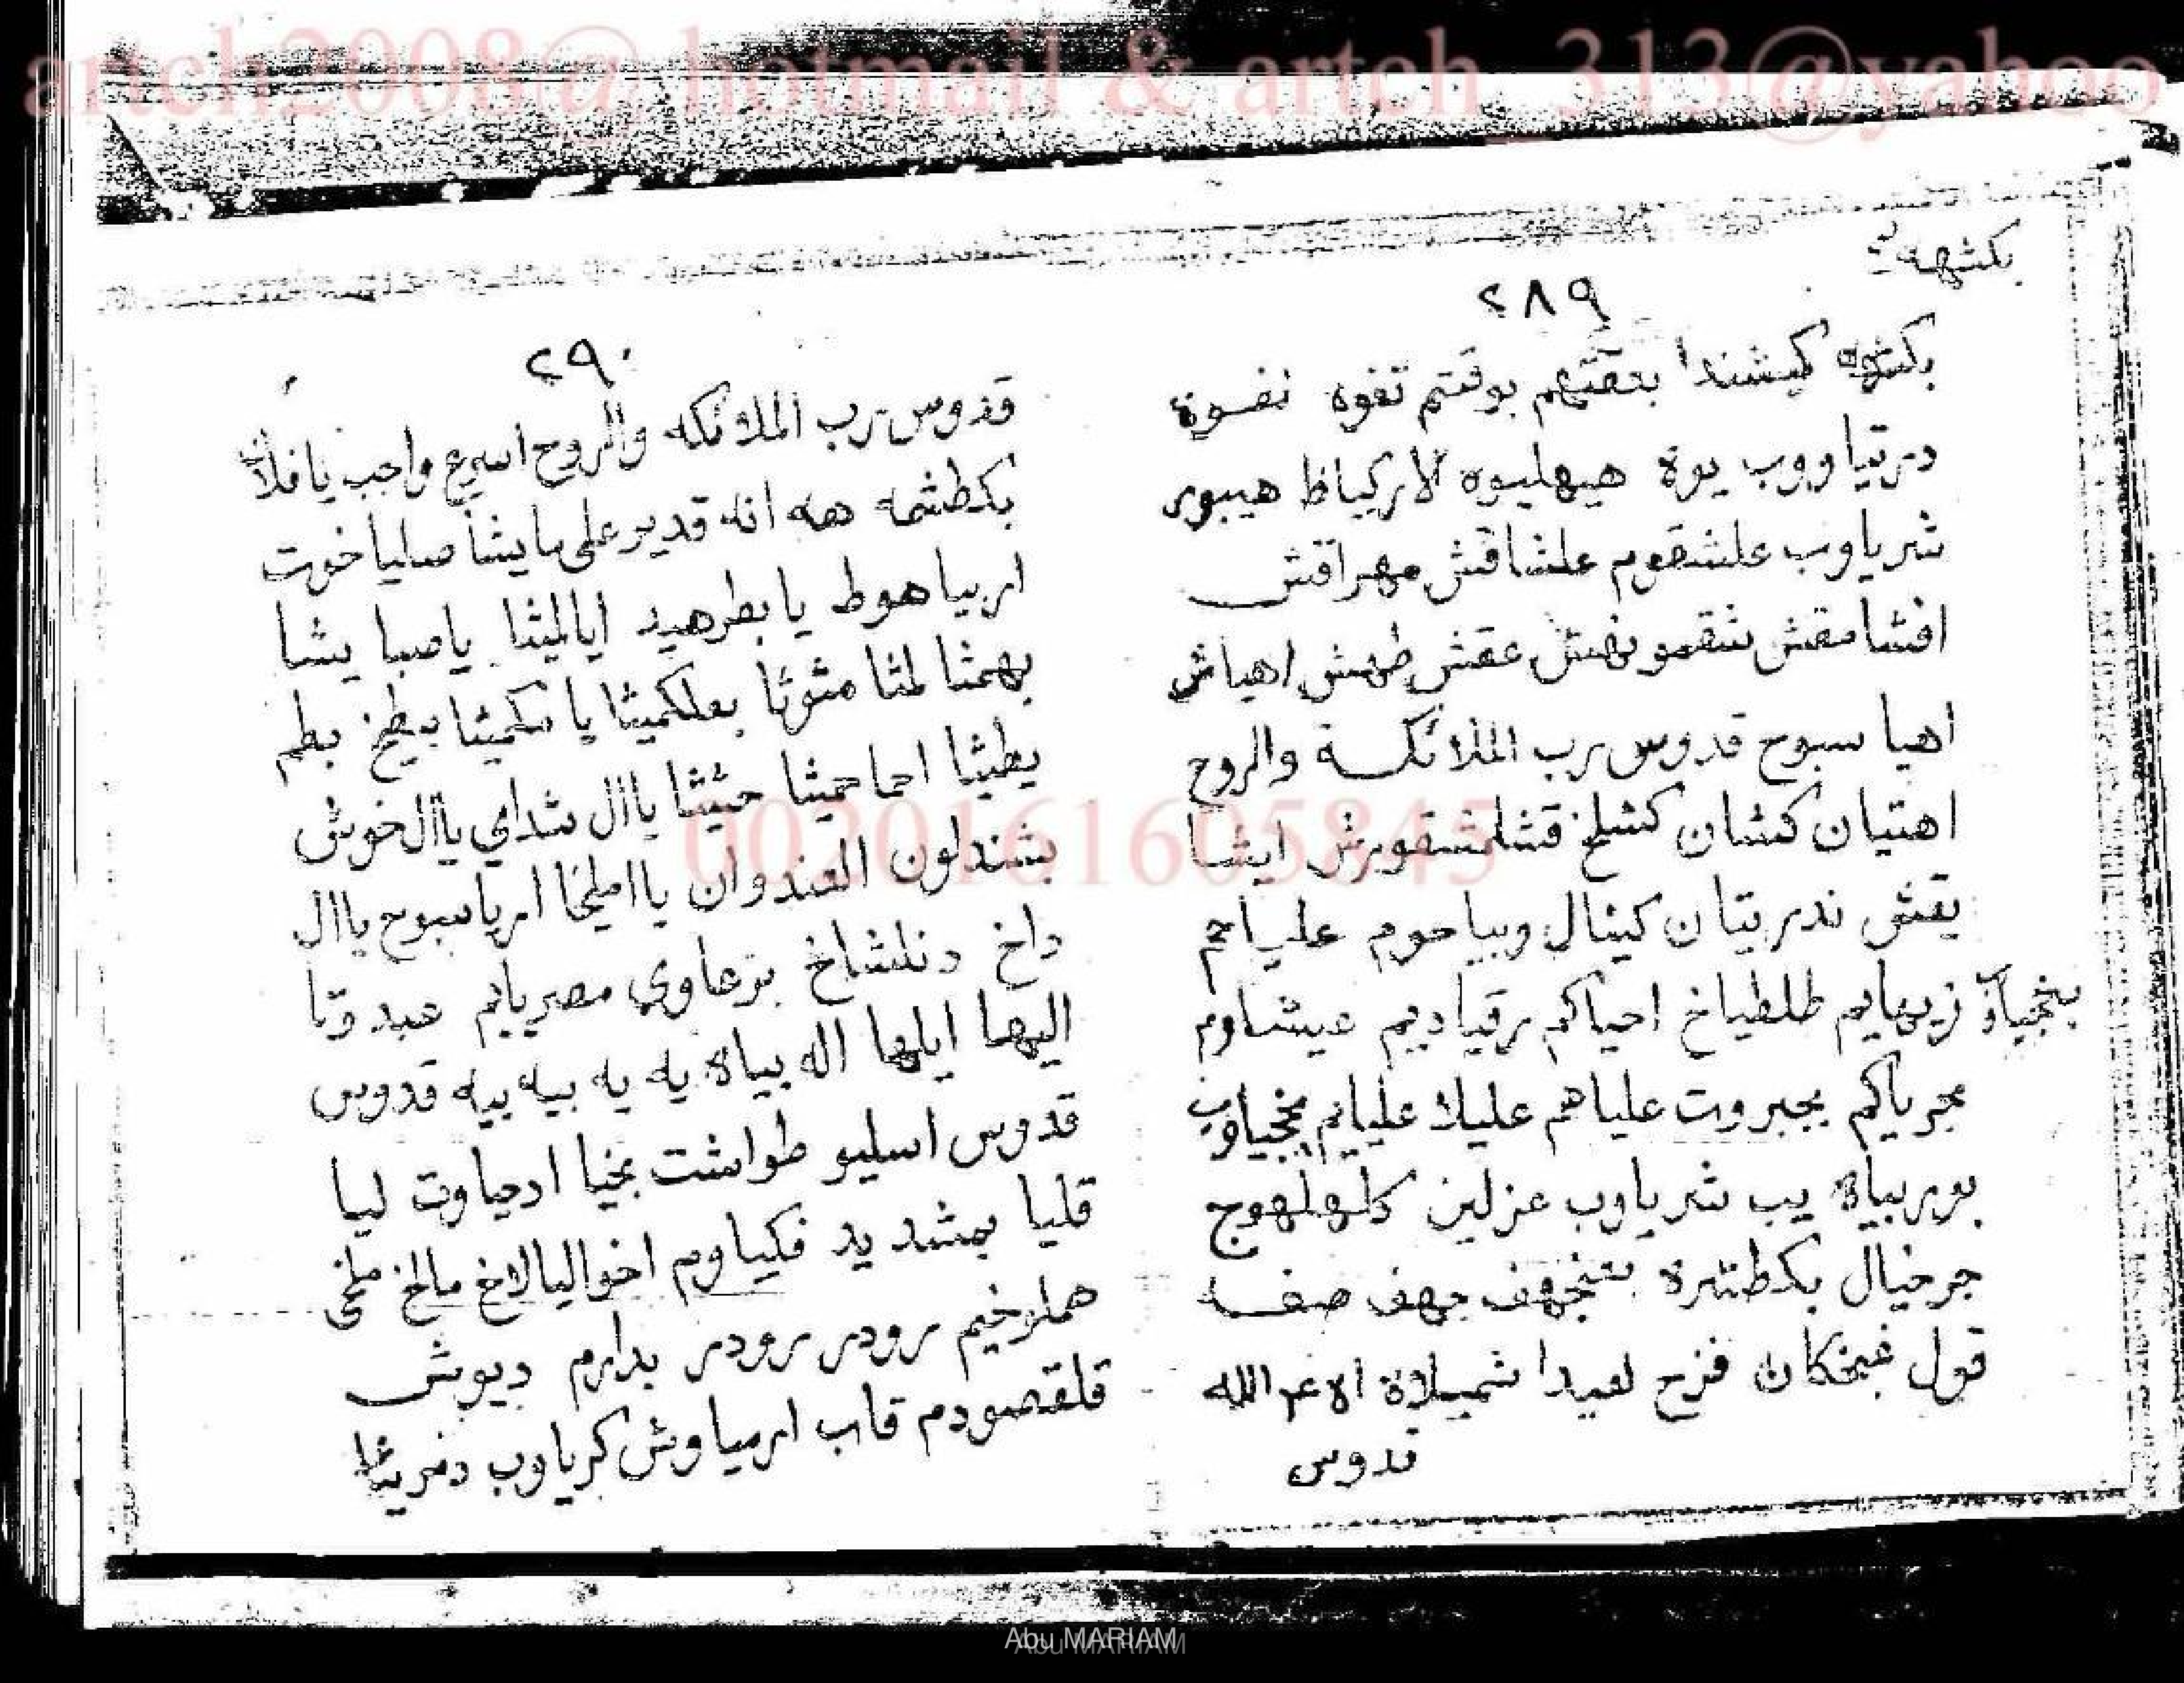 artch2008@ hotmail & artch_313@yahoo
بكشهه
٢٨٩
كيشندا بوقتم تفوه نفوة
درتيا ووب يوة هيهليوه لاركياظ هيبور
شرياوب علشقوم علشاقش مهراقش
افشامقش شقمونهش عقش طهش اهياش
اهيا سبوح قدوس رب الملائكة والروح
اهتيان كشان كشلخ قشلمشقورش ايشا
يقش ندريتان كينال وبياحوم علياحم
زيهايم طلطياخ احياكم رقياديم عيشاوم
بجرياكم بجبروت علياهم عليك عليايم
بوربياه يب شرياوب عزلين كلهلهوج
جرخيال بكطشره جهف صفه
قول غنخكان فزح لعيدا شميلاة الله
قدوس
٢٩٠
قدوس رب الملائكه والروح اسرع واجب يا فلان
بكطشه هه انه قدير على ما يشا صلياخوت
اربياهوط يا بطرهيد اياليثا ياصبا يشا
بهمثا لمثا مثوثا بعلكميثا يا مكميثا بيطيخ بطم
يطيثا احما حميثا حيثثا ياال شداي ياال خوش
بشندلون الغندوان يااملخا اريا سبوح ياال
داخ دنلشاخ بزعاوي مصريايم عبدوتا
اليها ايلها اله بياه يه يه بيه بيه قدوس
قدوس اسليو طواشت بخيا ادحياوت ليا
قليا بمشديد فكياوم اخواليالاخ مالخ ملخى
هملاخيم رودر رودر بدارم ديوش
قلقصودم قاب ارمياوش كرياوب دمريثا
00201616058​45
Abu MARIAM